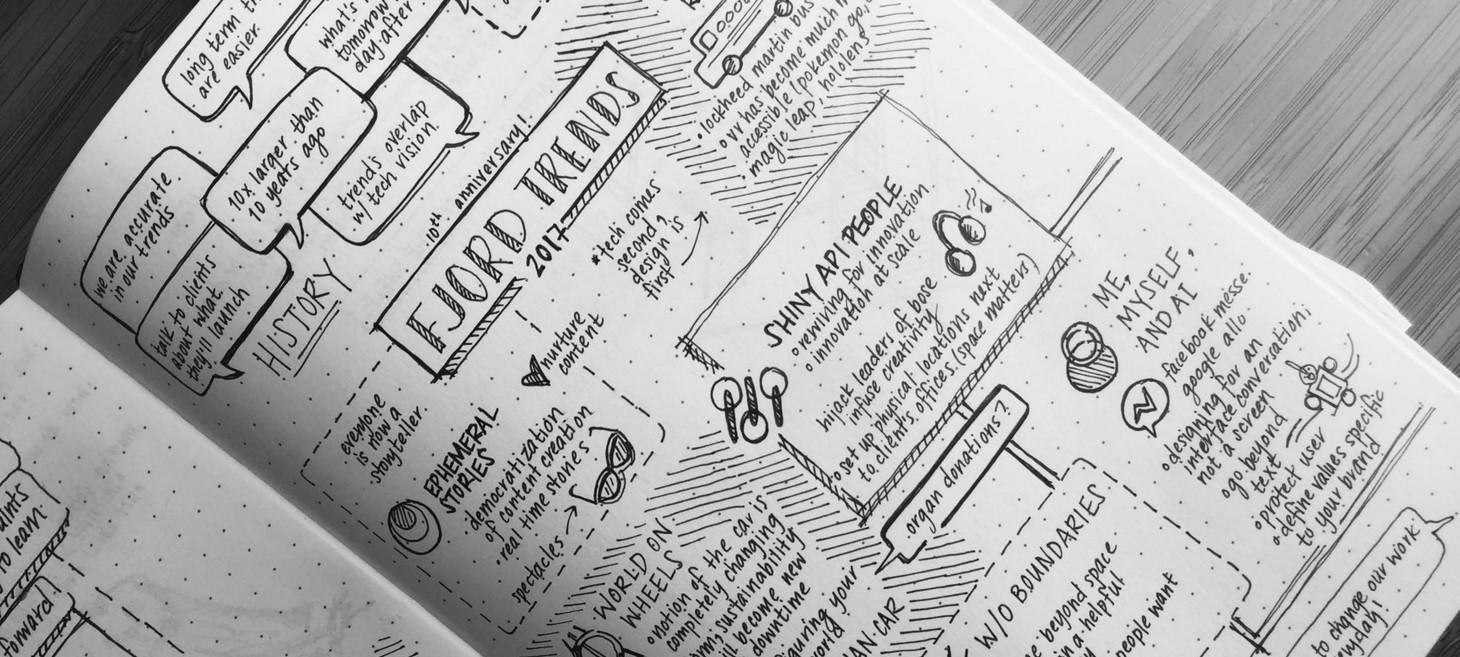 long term
are easier.
what's
tomorrow
day after
we are accurate
in our trends
10x larger than
10 years ago
trends overlap
w/ tech vision
talk to clients
about what
they'll launch
HISTORY
10th anniversary!
FJORD TRENDS
2017
*tech comes
second,
design is
first
bus
lockheed martin
vr has become much
accessible (pokemon go,
magic leap, hololen
everyone
is now a
storyteller.
nurture
content
EPHEMERAL
STORIES
democratization
of content creation
real time stories
spectacles
SHINY API PEOPLE
rewiring for innovation
innovation at scale
hijack leaders of bose
infuse creativity
set up physical locations next
to clients offices. (space matters)
organ donations?
ME,
MYSELF,
AND AI
Facebook messe.
google allo
designing for an
interface conversation;
not a screen
go beyond
text
protect user
define values specific
to your brand
WORLD ON
WHEELS
notion of the car is
completely changing
sustainability
ill become new
downtime
your
CAR
W/O BOUNDARIES
beyond space
in a helpful
people want
to change our work
to learn.
forward!